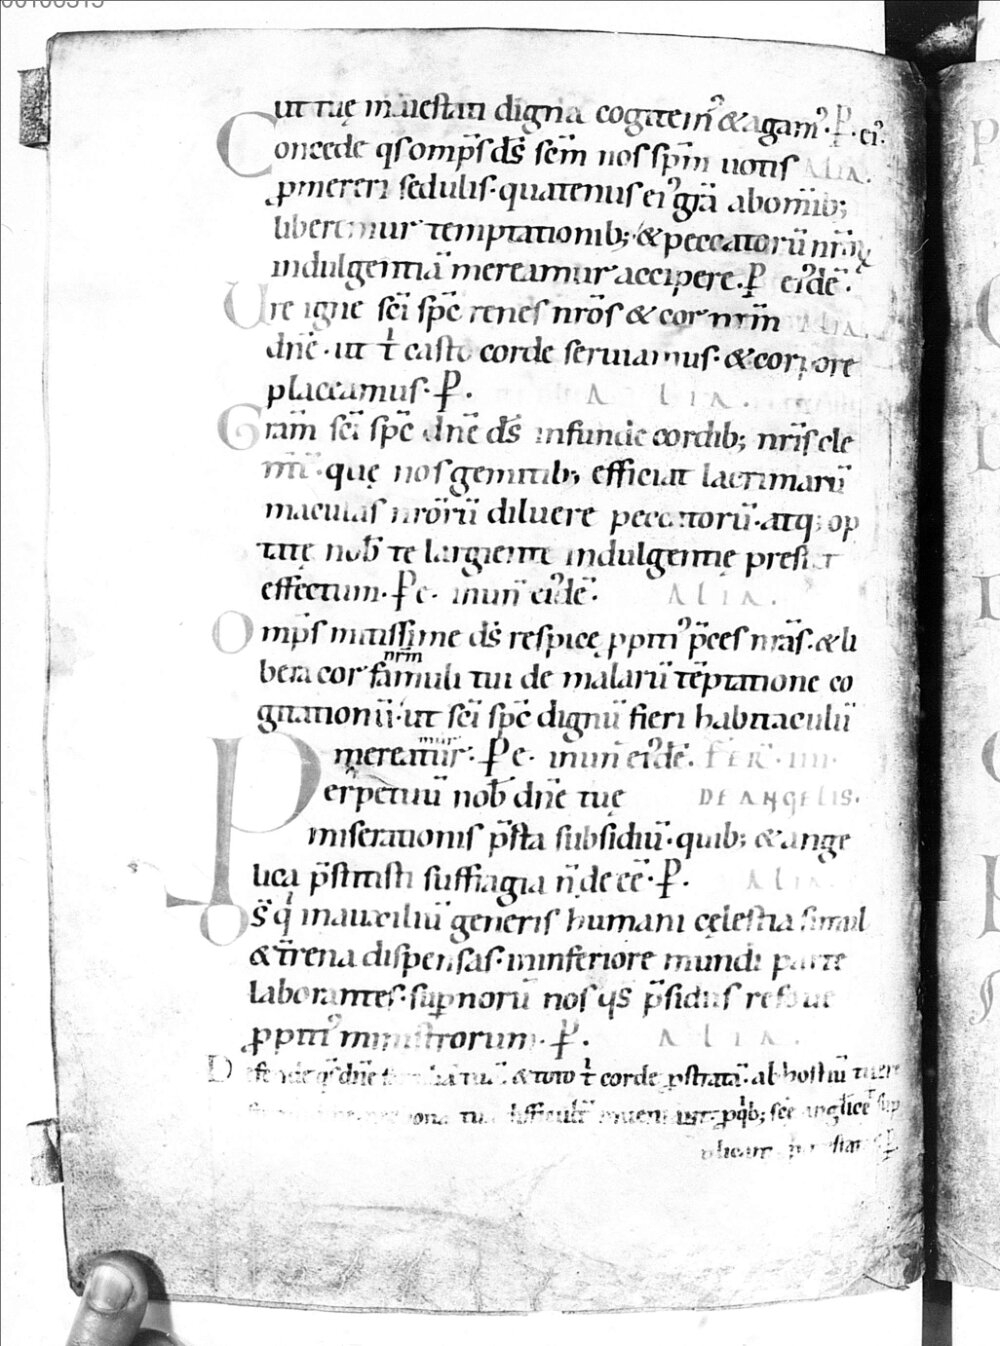 ut tuę maiestati digna cogitem᾿ & agam᾿· P̄· ei᾿.
Concede qs omp̄s d̄s sc̄m nos sp̄m uotis ALIA.
pmereri sedulis· quatenus ei᾿ grā ab om̄ib;
liberemur temptationib;· & peccatorū nr̄oꝝ
indulgentiā mereamur accipere· P̄ ei᾿dē·
Ure igne sc̄i sp̄c renes nr̄os & cor nr̄m ALIA.
dn̄e· ut t̄ casto corde seruiamus· & corpore
placeamus· P̄. ALIA.
Gram̄ sc̄i sp̄c dn̄e d̄s infunde cordib; nr̄is cle
m̄· quę nos gemitib; efficiat lacrimarū
maculas nr̄orū diluere peccatorū· atq; op
tatę nob̄ te largiente indulgentię prestet
effectum· P̄ c· inun̄ ei᾿dē· ALIA.
Omp̄s mitissime d̄s respice ppiti᾿ p̄ces nr̄as· & li
nr̄m
bera cor famuli tui de malarū tēptatione co
gitationū· ut sc̄i sp̄c dignū fieri habitaculū
mur
mereatur· P̄ c· inun̄ ei᾿dē· FER̄· IIII·
Perpetuū nob̄ dn̄e tuę DE ANGELIS.
miserationis p̄sta subsidiū· quib; & ange
lica p̄stitisti suffragia n̄ de eē· P̄· ALIA.
Os̄ q̄ in auxiliū generis humani cęlestia simul
& tr̄rena dispensas· in inferiore mundi parte
laborantes· sup̄norū nos qs̄ p̄sidiis refoue
ppiti᾿ ministrorum· P̄. ALIA.
Defende qs̄ dn̄e tuā· & toto t̄ corde p̄stratā· ab hostiū tuere
tu· difficult
plicant P̄